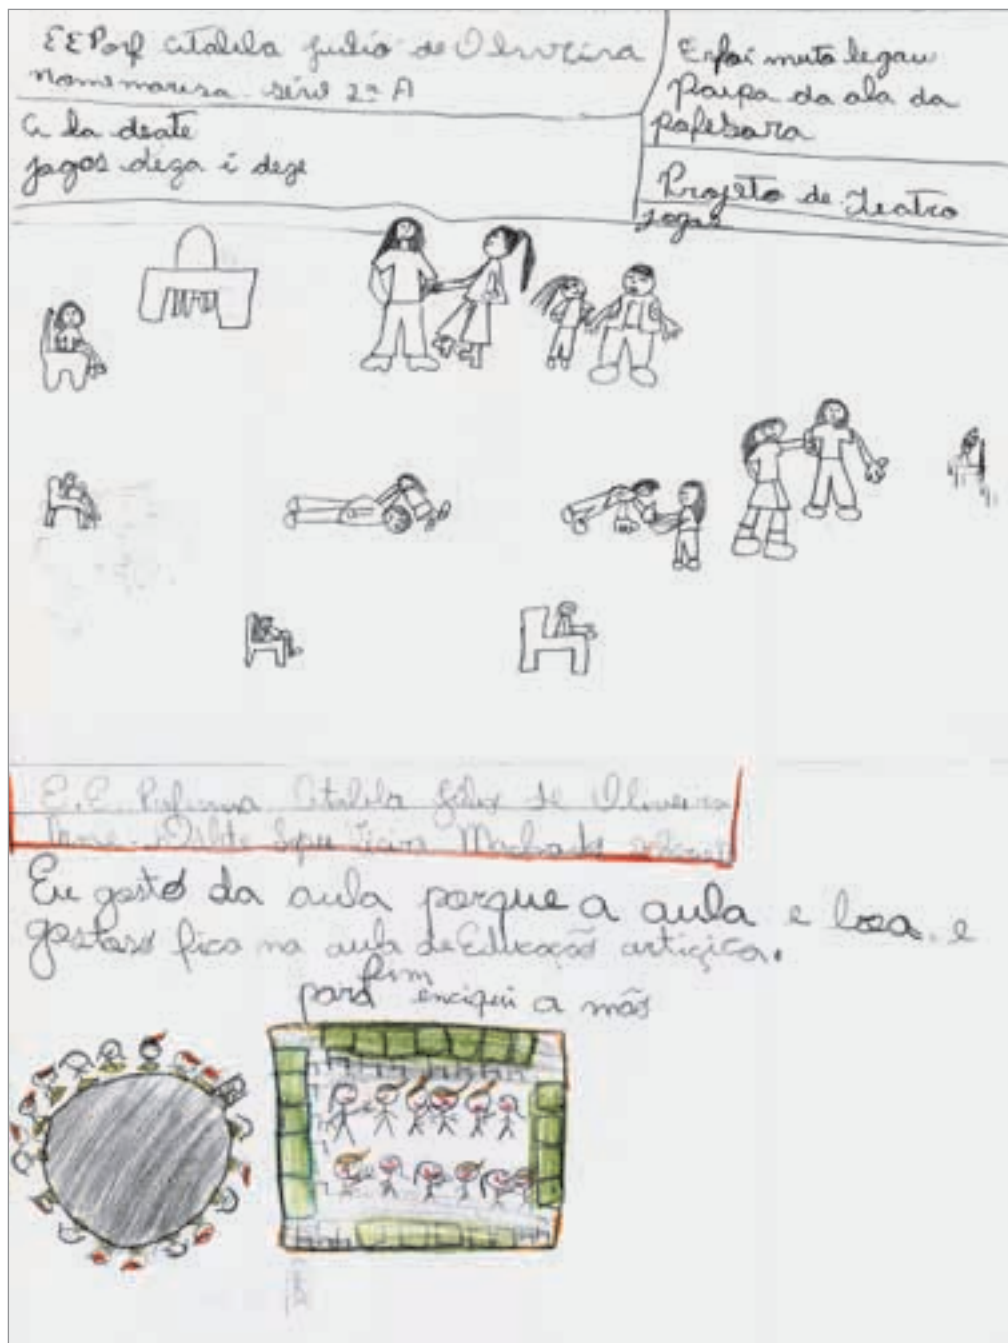 EEPorf Citalila Julio de Oliveira
Nome marisa série 2ª A
a la deate
jogos dega i dege
E foi muto legau
Paipa da ala da
pofesora
Projeto de Teatro
jogas
E.E. Citalila de Oliveira
Machado
Eu gosto da aula porque a aula e boa. e
gostoso fica na aula de Educação artiçica.
para bem enciqui a mãs